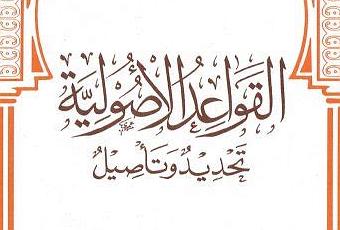 القَوَاعِدُ الأُصُولِيَّة
تَحْدِيدٌ وَتَأْصِيلٌ